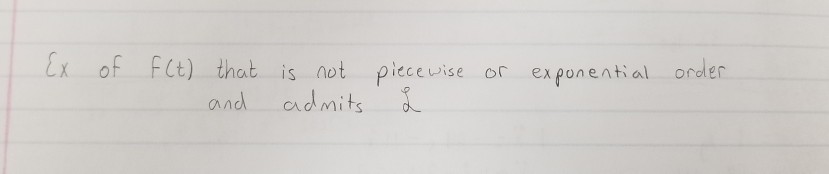 Ex of F(t) that is not piecewise or exponential order
and admits ℒ